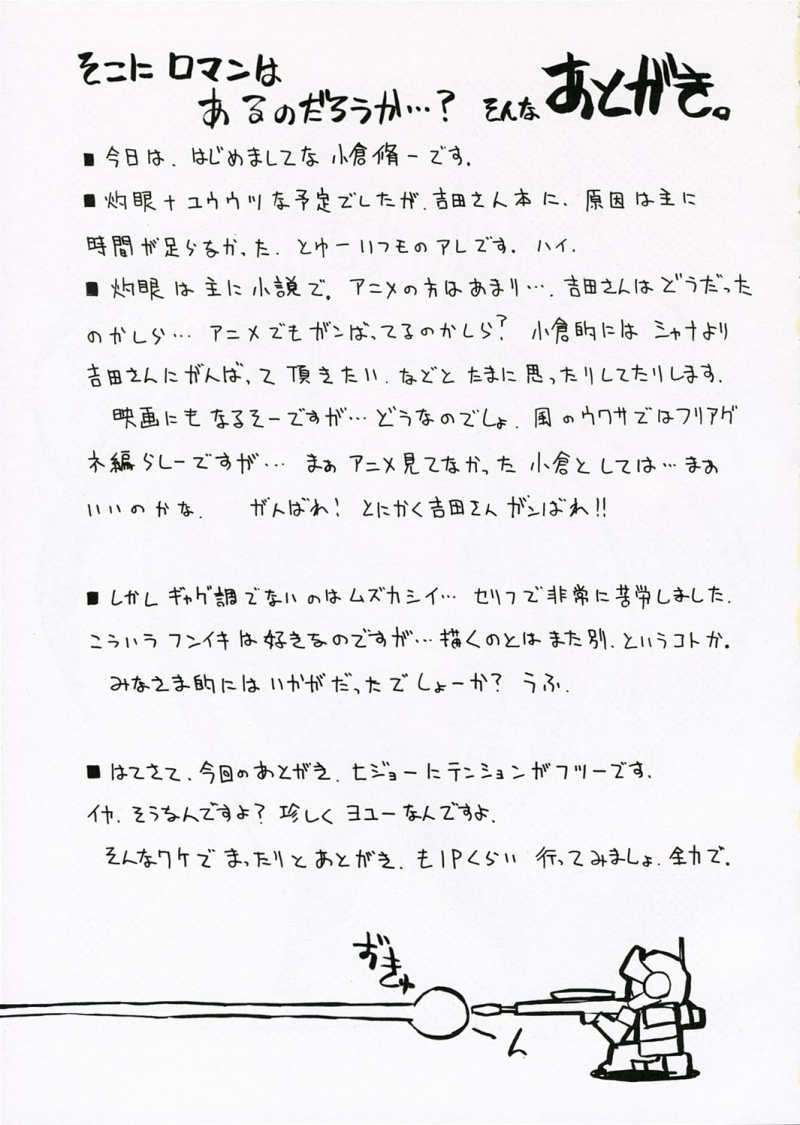 そこに ロマンは
あるのだろうか…? そんな あとがき。
■ 今日は、はじめましてな 小倉脩一です。
■ 灼眼+ユウウツな予定でしたが、吉田さん本に、原因は主に
時間が足らなかった、とゆーいつものアレです。ハイ、
■ 灼眼は主に小説で。アニメの方はあまり…、吉田さんはどうだった
のかしら… アニメでもガンばってるのかしら? 小倉的には シャナより
吉田さんにがんばって 頂きたい、などと たまに思ったりしてたりします、
映画にも なるそーですが… どうなのでしょ、風のウワサではフリアグ
ネ編らしーですが… まぁ アニメ見てなかった 小倉としては… まぁ
いいのかな、 がんばれ! とにかく吉田さん ガンばれ!!
■ しかし ギャグ調でないのは ムズカシイ… セリフで非常に苦労しました、
こういう フンイキは好きなのですが… 描くのとは また別、というコトか。
みなさま的には いかがだったで しょーか? うふ、
■ はてさて、今回のあとがき、ヒジョーにテンションがフツーです、
イヤ、そうなんですよ? 珍しく ヨユーなんですよ、
そんなワケで まったりと あとがき、も1Pくらい 行ってみましょ、全力で。
おきゅ
ーん